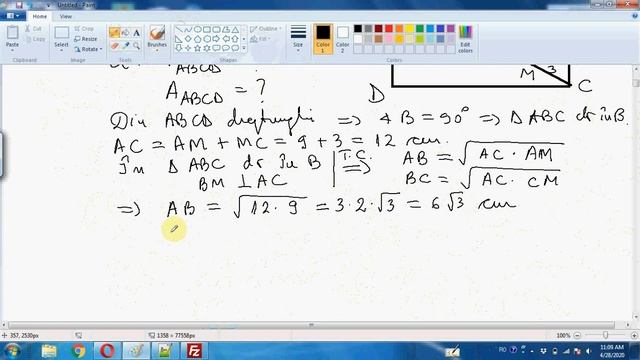 Untitled - Paint
Home View
Paste Select Brushes Shapes Size Color 1 Color 2 Edit colors
Clipboard Image Tools Shapes Colors
ABCD
A ABCD = ?
M 3
D C
Din ABCD dreptunghi => ∢ B = 90° => Δ ABC dr în B.
AC = AM + MC = 9 + 3 = 12 cm.
În Δ ABC dr în B | T.C. => AB = √AC · AM
BM ⊥ AC BC = √AC · CM
=> AB = √12 · 9 = 3 · 2 · √3 = 6√3 cm
357, 2530px 1358 × 77558px 100%
RO 11:09 AM
6/28/2020